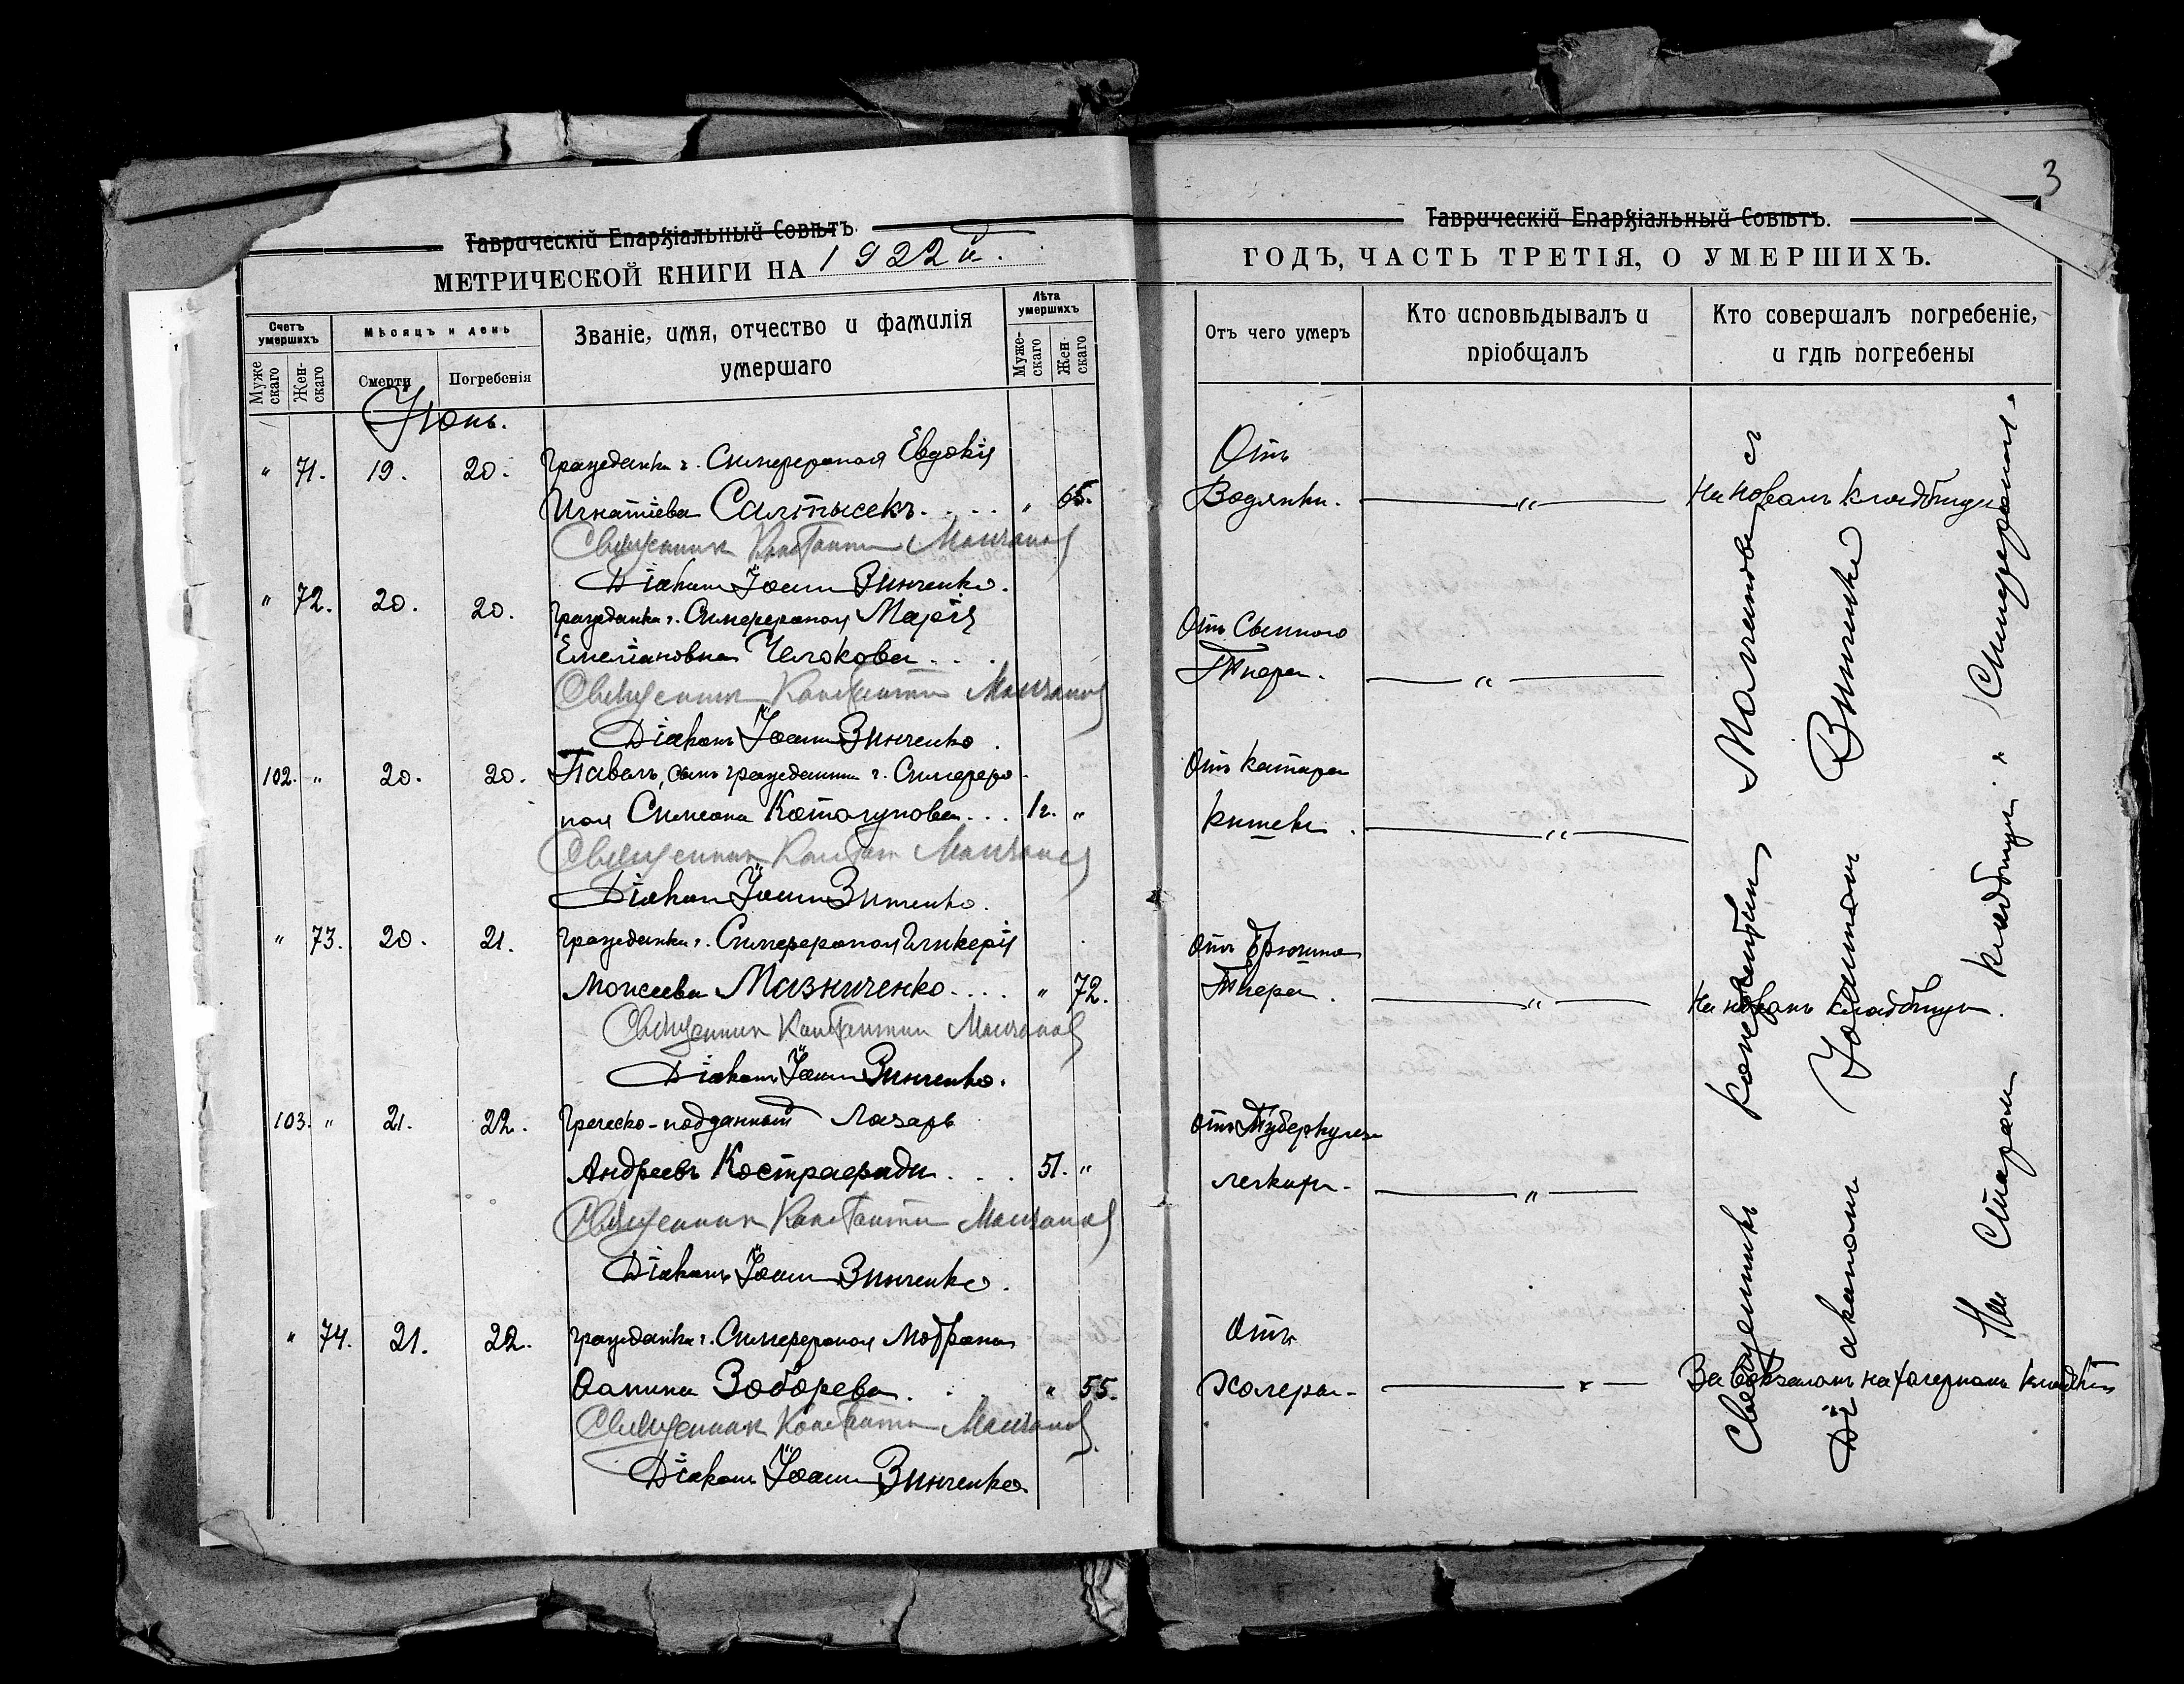 3
Таврическій Епархіальный Совѣтъ.
МЕТРИЧЕСКОЙ КНИГИ НА 1922 й.
Счетъ умершихъ
Муже скаго
Жен- скаго
Мѣсяцъ и день
Смерти
Погребенія
Званіе, имя, отчество и фамилія
умершаго
Лѣта умершихъ
Муже- скаго
Жен- скаго
Іюнь.
" 71. 19. 20. Гражданка г. Симферополя Евдокія
Игнатіева . . . . " 65.
Священникъ Константинъ
Діаконъ Іоаннъ Зинченко.
" 72. 20. 20. Гражданка г. Симферополя Марія
Емеліановна Челокова . . .
Священникъ Константинъ
Діаконъ Іоаннъ Зинченко.
102. " 20. 20. Павелъ, сынъ гражданина г. Симферо-
поля Симеона . . . 1 г. "
Священникъ Констант
Діаконъ Іоаннъ Зинченко.
" 73. 20. 21. Гражданка г. Симферополя Гликерія
Моисеева Мазниченко . . . . " 72.
Священникъ Константинъ
Діаконъ Іоаннъ Зинченко.
103. " 21. 22. Греческо-подданный Лазарь
Андреевъ . . . 51. "
Священникъ Константинъ
Діаконъ Іоаннъ Зинченко.
" 74. 21. 22. Гражданка г. Симферополя
Зоборева . . . " 55.
Священникъ Константинъ
Діаконъ Іоаннъ Зинченко
Таврическій Епархіальный Совѣтъ.
ГОДЪ, ЧАСТЬ ТРЕТІЯ, О УМЕРШИХЪ.
Отъ чего умеръ
Кто исповѣдывалъ и
пріобщалъ
Кто совершалъ погребеніе,
и гдѣ погребены
Отъ
Водянки. — " — На новомъ кладбищѣ
Отъ Сыпного
Тифа. — " —
Отъ катара
кишекъ. — " —
Отъ Брюшного
Тифа. — " — На новомъ кладбищѣ.
Отъ Туберкулеза
легкихъ. — " —
Отъ
Холеры. — " — За вокзаломъ на холерномъ кладбищѣ
Священникъ Константинъ съ
Діакономъ Іоанномъ Зинченко
На Старомъ кладбищѣ г. Симферополя.